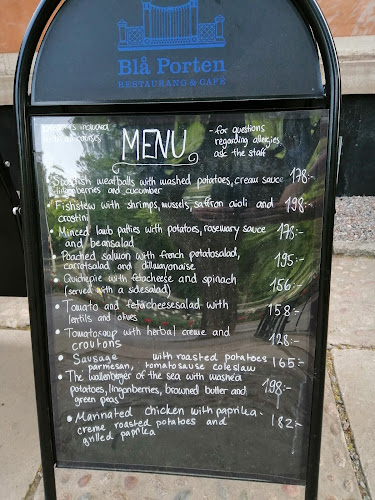 Blå Porten
RESTAURANG & CAFÉ
included
courses
MENU
- for questions
regarding allergies
ask the staff
meatballs with washed potatoes, cream sauce 178:-
lingonberries and cucumber
• Fishstew with shrimps, mussels, saffron aioli and 198:-
crostini
• Minced lamb patties with potatoes, rosemary sauce 178:-
and beansalad
• Poached salmon with french potatosalad, 195:-
carrotsalad and dillmayonaise
• Quichepie with fetacheese and spinach 156:-
(served with a sidesalad)
• Tomato and fetacheesesalad with 158:-
lentils and olives
• Tomatosoup with herbal creme and 128:-
croutons
• Sausage with roasted potatoes 165:-
parmesan, tomatosause coleslaw
• The wallenberger of the sea with washed
potatoes, lingonberries, browned butter and 198:-
green peas
• Marinated chicken with paprika-
creme roasted potatoes and 182:-
grilled paprika